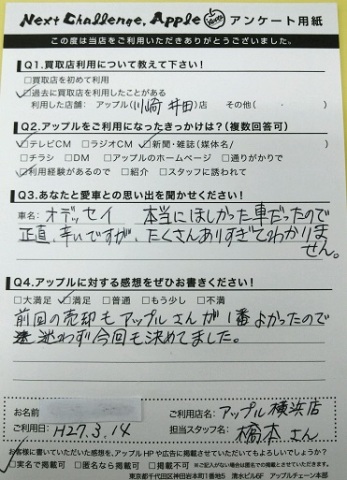 Next Challenge, Apple アンケート用紙
この度は当店をご利用いただきありがとうございました。
Q1.買取店利用について教えて下さい！
□買取店を初めて利用
☑過去に買取店を利用したことがある
利用した店舗: アップル(川崎 井田)店 その他( ・ )
Q2.アップルをご利用になったきっかけは？(複数回答可)
☑テレビCM □ラジオCM ☑新聞・雑誌(媒体名/ )
□チラシ □DM □アップルのホームページ □通りがかりで
☑利用経験があるので □紹介 □スタッフに誘われて
Q3.あなたと愛車との思い出を聞かせください！
車名: オデッセイ 本当にほしかった車だったので
正直、辛いですが、たくさんありすぎてわかりま
せん。
Q4.アップルに対する感想をぜひお書きください！
□大満足 ☑満足 □普通 □もう少し □不満
前回の売却もアップルさんが1番よかったので
迷わず今回も決めてました。
お名前
ご利用店名: アップル横浜店
ご利用日: H27.3.14
担当スタッフ名: 橋本さん
お客様に書いていただいた感想を、アップルHPや広告に掲載させていただいてもよろしいでしょうか？
☑実名で掲載可 □匿名なら掲載可 □掲載不可 ※ご記入がない場合は匿名での掲載とさせていただきます。
東京都千代田区神田岩本町1番地5 清水ビル6F アップルチェーン本部